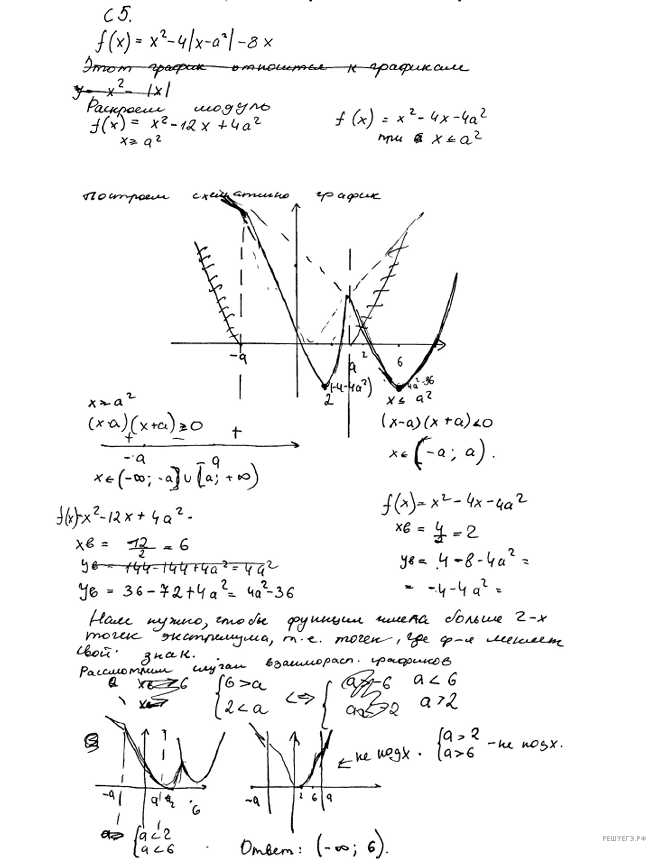 С 5.
f(x) = x² - 4|x-a²| - 8x
Этот график относится к графикам
y = x² - |x|
Раскроем модуль
f(x) = x² - 12x + 4a²
x ≥ a²
f(x) = x² - 4x - 4a²
при x ≤ a²
Построем схематично график
-a
2
(-4-4a²)
a²
6
4a²-36
x > a²
(x-a)(x+a) ≥ 0
+ - +
-a a
x ∈ (-∞; -a] ∪ [a; +∞)
x ≤ a²
(x-a)(x+a) < 0
x ∈ (-a; a).
f(x) = x² - 12x + 4a² -
xв = 12/2 = 6
yв = 144 - 144 + 4a² = 4a²
yв = 36 - 72 + 4a² = 4a² - 36
f(x) = x² - 4x - 4a²
xв = 4/2 = 2
yв = 4 - 8 - 4a² =
= -4 - 4a² =
Нам нужно, чтобы функции имела больше 2-х
точек экстримума, т.е. точек, где ф-я меняет
свой знак.
Рассмотрим случаи взаиморасп. графиков
{6 > a
{2 < a
⇔
a < 6
a > 2
-a
a
2
6
{a < 2
{a < 6
-a
2 6 a
← не подх.
{a > 2
{a > 6
- не подх.
Ответ: (-∞; 6).
РЕШУЕГЭ.РФ